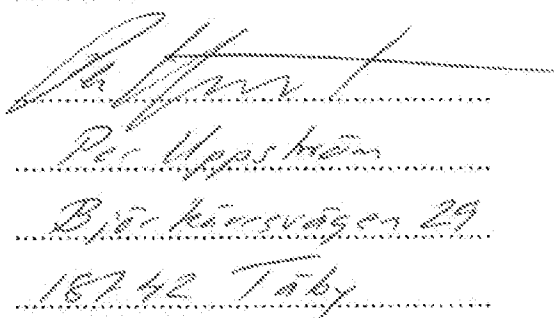 Per Uppström
Björkkärrsvägen 29
187 42 Täby